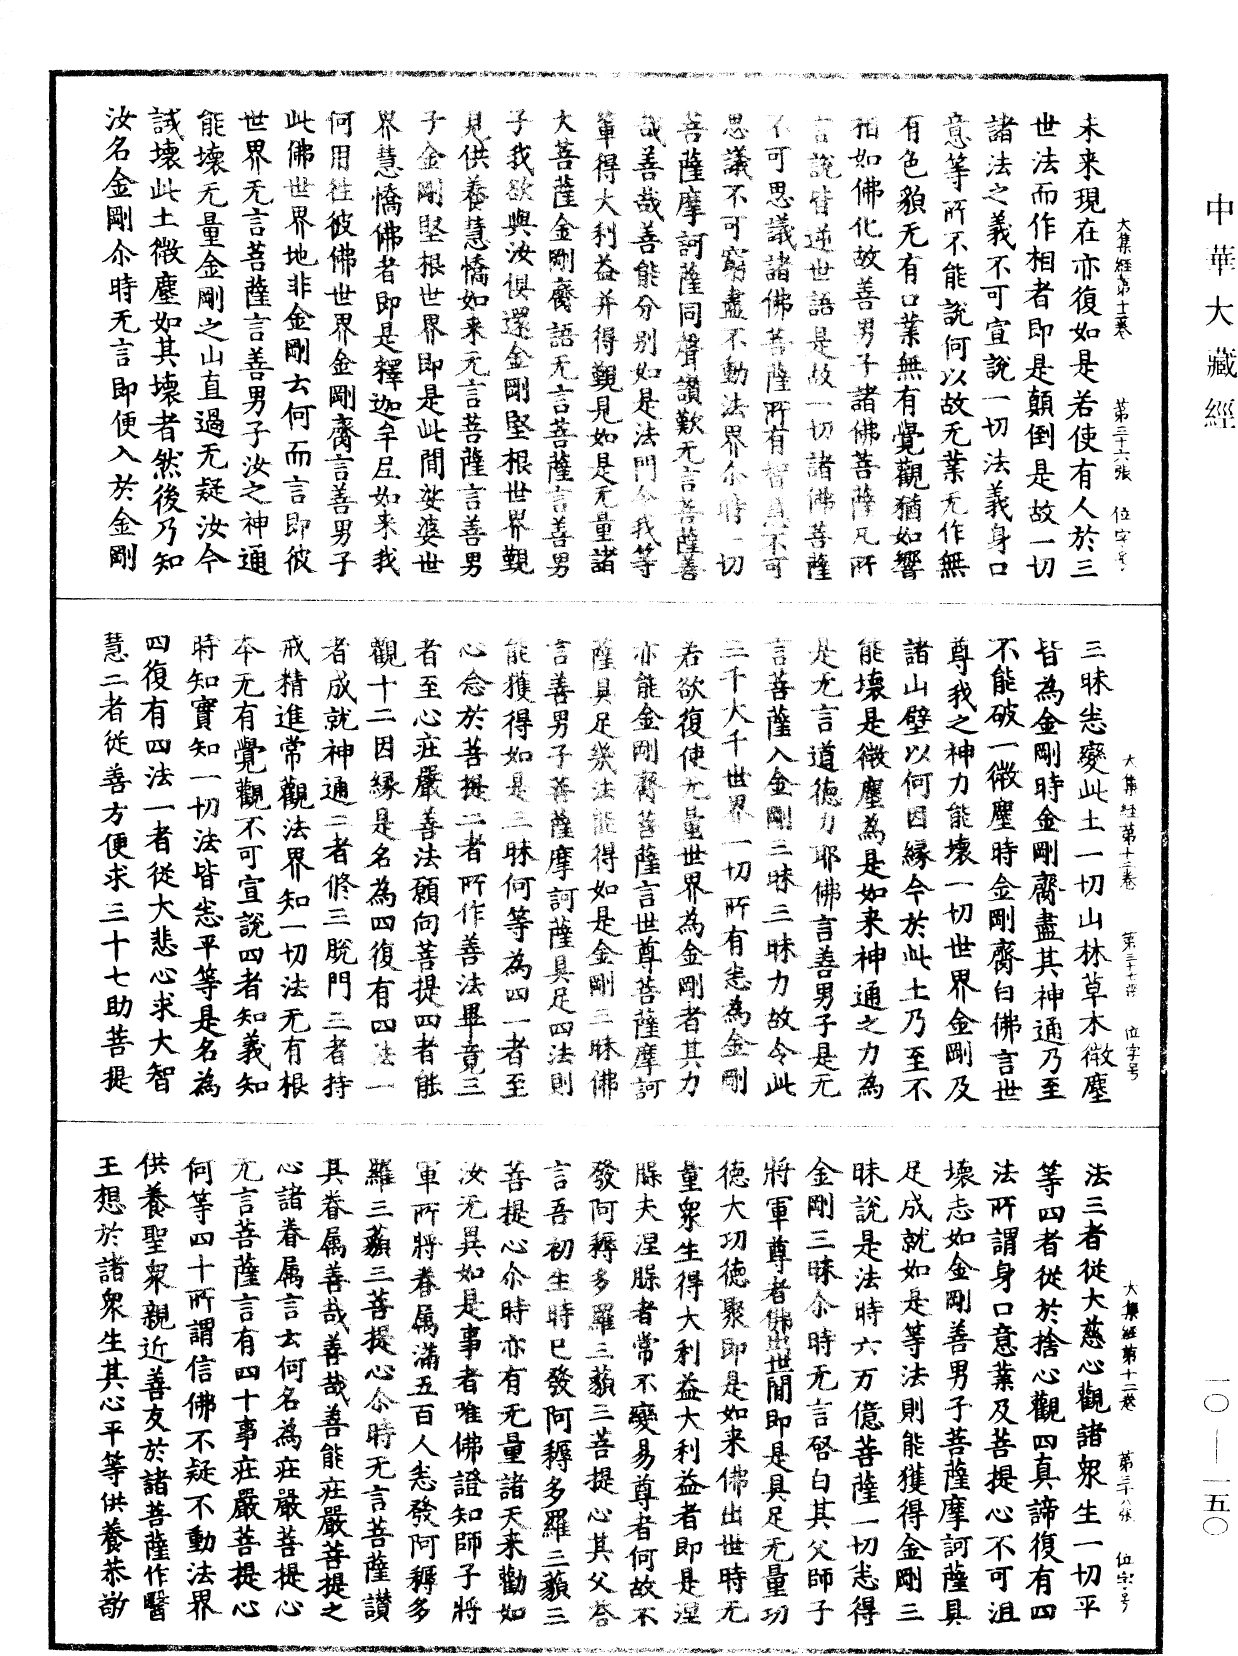 中華大藏經
大集經第十三卷　第三十六張　位字号
未来現在亦復如是若使有人於三
世法而作相者即是顛倒是故一切
諸法之義不可宣說一切法義身口
意等所不能說何以故无業无作無
有色貌无有口業無有覺觀猶如響
相如佛化故善男子諸佛菩薩凡所
言說皆逆世語是故一切諸佛菩薩
不可思議諸佛菩薩所有智慧不可
思議不可窮盡不動法界尒時一切
菩薩摩訶薩同聲讚歎无言菩薩善
哉善哉善能分別如是法門令我等
軰得大利益并得覩見如是无量諸
大菩薩金剛齎語无言菩薩言善男
子我欲與汝俱還金剛堅根世界覲
見供養慧憍如来无言菩薩言善男
子金剛堅根世界即是此間娑婆世
界慧憍佛者即是釋迦牟尼如来我
何用往彼佛世界金剛齎言善男子
此佛世界地非金剛云何而言即彼
世界无言菩薩言善男子汝之神通
能壞无量金剛之山直過无疑汝今
試壞此土微塵如其壞者然後乃知
汝名金剛尒時无言即便入於金剛
大集經第十三卷　第三十七張　位字号
三昧悉變此土一切山林草木微塵
皆為金剛時金剛齎盡其神通乃至
不能破一微塵時金剛齎白佛言世
尊我之神力能壞一切世界金剛及
諸山壁以何因緣今於此土乃至不
能壞是微塵為是如来神通之力為
是无言道德力耶佛言善男子是无
言菩薩入金剛三昧三昧力故令此
三千大千世界一切所有悉為金剛
若欲復使无量世界為金剛者其力
亦能金剛齎菩薩言世尊菩薩摩訶
薩具足幾法能得如是金剛三昧佛
言善男子菩薩摩訶薩具足四法則
能獲得如是三昧何等為四一者至
心念於菩提二者所作善法畢竟三
者至心莊嚴善法願向菩提四者能
觀十二因緣是名為四復有四法一
者成就神通二者修三脫門三者持
戒精進常觀法界知一切法无有根
本无有覺觀不可宣說四者知義知
時知實知一切法皆悉平等是名為
四復有四法一者從大悲心求大智
慧二者從善方便求三十七助菩提
大集經第十三卷　第三十八張　位字号
法三者從大慈心觀諸衆生一切平
等四者從於捨心觀四真諦復有四
法所謂身口意業及菩提心不可沮
壞志如金剛善男子菩薩摩訶薩具
足成就如是等法則能獲得金剛三
昧說是法時六万億菩薩一切悉得
金剛三昧尒時无言啓白其父師子
將軍尊者佛出世間即是具足无量功
德大功德聚即是如来佛出世時无
量衆生得大利益大利益者即是涅
縢夫涅縢者常不變易尊者何故不
發阿耨多羅三藐三菩提心其父荅
言吾初生時已發阿耨多羅三藐三
菩提心尒時亦有无量諸天来勸如
汝无異如是事者唯佛證知師子將
軍所將眷属滿五百人悉發阿耨多
羅三藐三菩提心尒時无言菩薩讃
其眷属善哉善哉善能莊嚴菩提之
心諸眷属言云何名為莊嚴菩提心
无言菩薩言有四十事莊嚴菩提心
何等四十所謂信佛不疑不動法界
供養聖衆親近善友於諸菩薩作醫
王想於諸衆生其心平等供養恭敬
一〇—一五〇